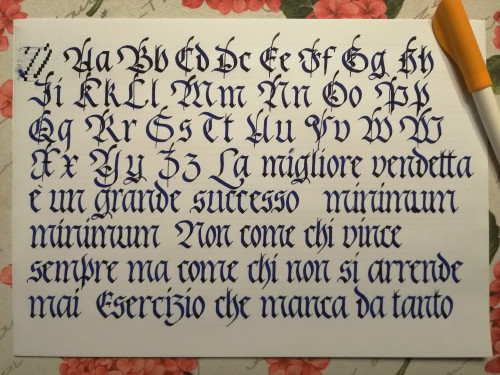 Aa Bb Cd Dc Ee Ff Gg Hh
Ii Kk Ll Mm Nn Oo Pp
Qq Rr Ss Tt Uu Vv W W
Xx Yy Zz La migliore vendetta
è un grande successo minimum
minimum Non come chi vince
sempre ma come chi non si arrende
mai Esercizio che manca da tanto